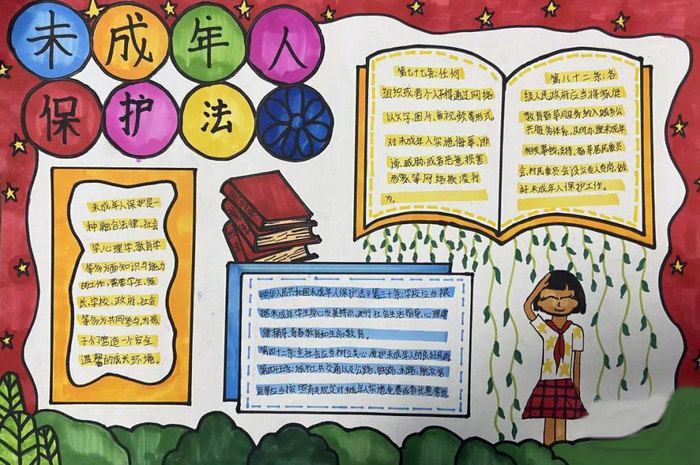 未成年人
保护法
未成年人保护是一
种融合法律、社会
学、心理学、教育学
等多方面知识与能力
的工作,需要学生、家
长、学校、政府、社会
等多方共同参与,为孩
子们营造一个安全
温馨的成长环境。
第七十七条:任何
组织或者个人不得通过网络
以文字、图片、音视频等形式,
对未成年人实施侮辱、诽
谤、威胁或者恶意损害
形象等网络欺凌行
为。
第八十二条:各
级人民政府应当将家庭
教育指导服务纳入城乡公
共服务体系,
好未成年人保护工作。
《中华人民共和国未成年人保护法》第三十条:学校应当根
据未成年学生身心发展特点,进行社会生活指导、心理健
康辅导、青春期教育和生命教育。
第四十二条:全社会应当树立关心、爱护未成年人的良好风尚
第四十五条:城市公共交通以及公路、铁路、水路、航空客
运等应当按照有关规定对未成年人实施免费或者优惠票价